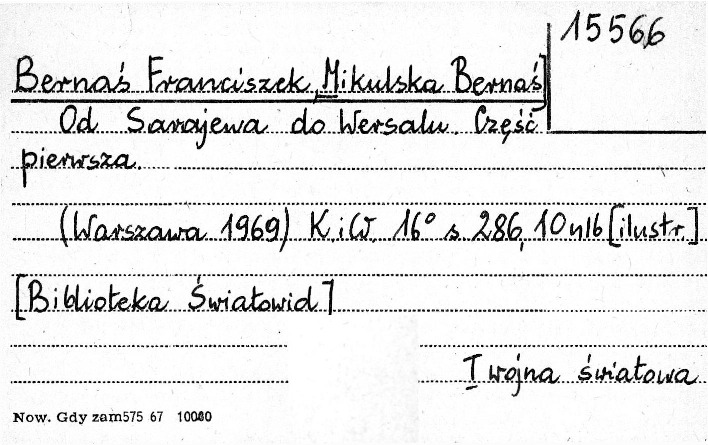 15566
Bernaś Franciszek, Mikulska Bernaś]
Od Sarajewa do Wersalu. Część
pierwsza.
(Warszawa 1969) K.iW. 16° s. 286, 10 nlb [ilustr.]
[Biblioteka Światowid]
I wojna światowa
Now. Gdy zam575 67 10080